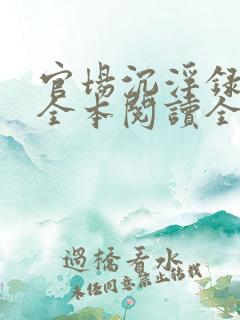 官場沉淫録
全本閱讀全
過橋看水
未经同意禁止转载